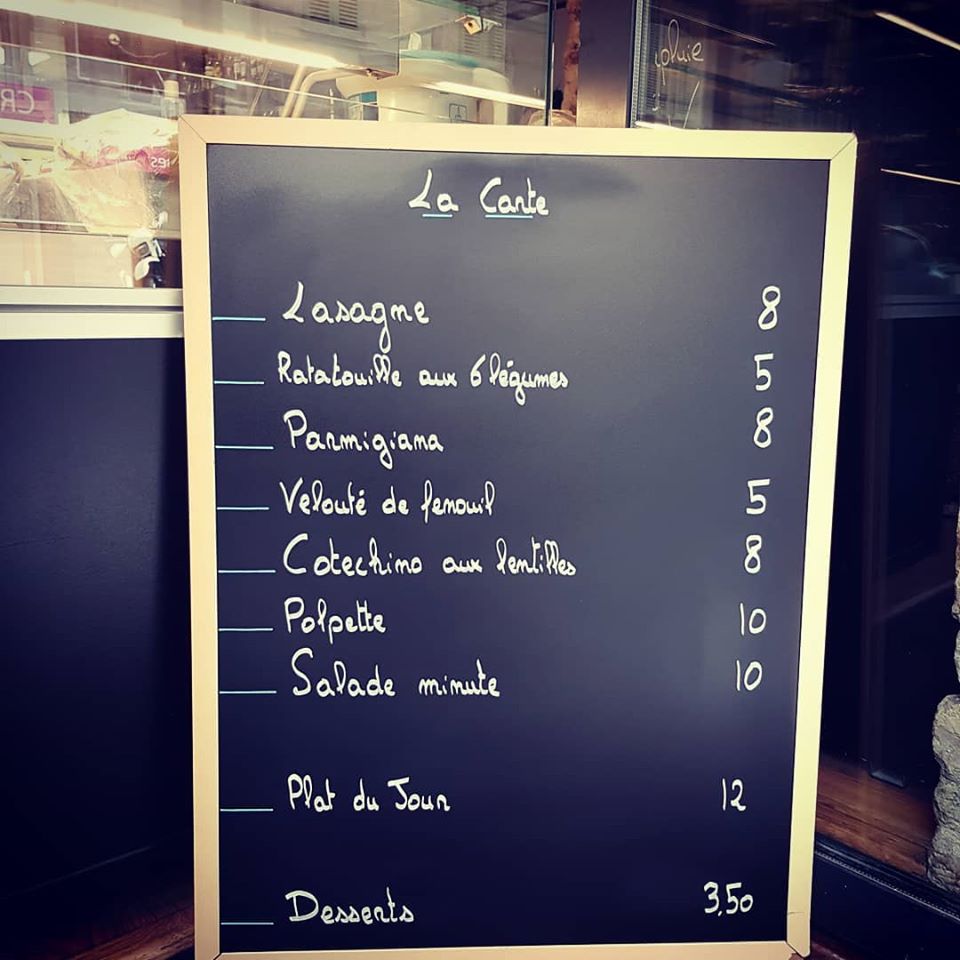 La Carte
Lasagne 8
Ratatouille aux 6 légumes 5
Parmigiana 8
Velouté de fenouil 5
Cotechino aux lentilles 8
Polpette 10
Salade minute 10
Plat du Jour 12
Desserts 3,50